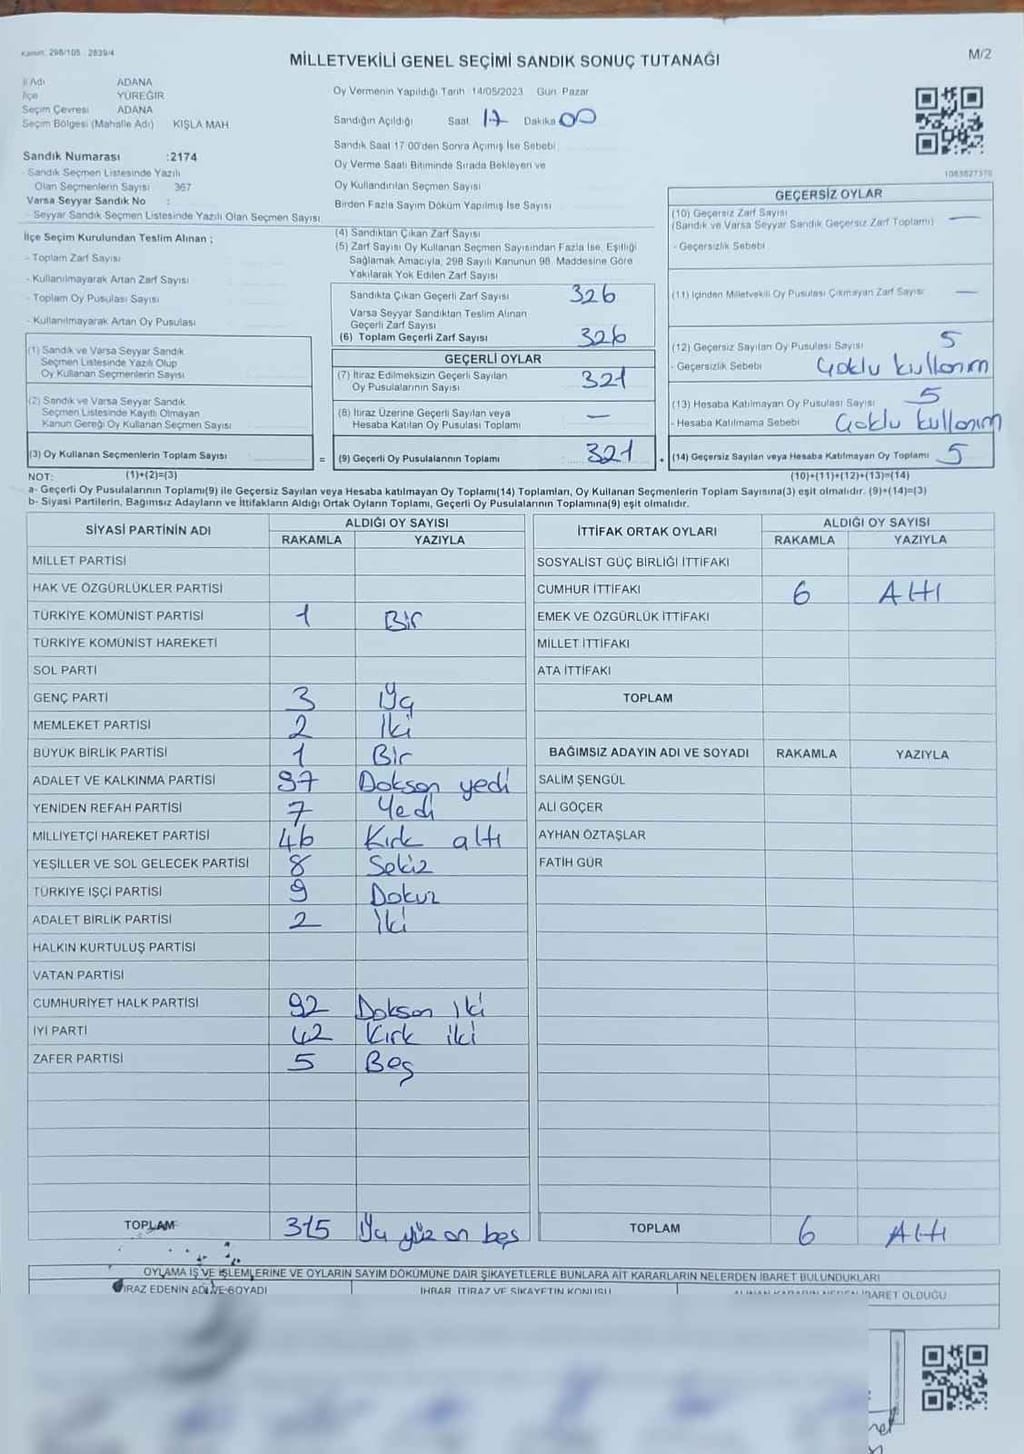 Kanun: 298/105 2839/4
MİLLETVEKİLİ GENEL SEÇİMİ SANDIK SONUÇ TUTANAĞI
M/2
İl Adı ADANA
İlçe YÜREĞİR
Seçim Çevresi ADANA
Seçim Bölgesi (Mahalle Adı) KIŞLA MAH
Sandık Numarası :2174
Sandık Seçmen Listesinde Yazılı
Olan Seçmenlerin Sayısı 367
Varsa Seyyar Sandık No :
Seyyar Sandık Seçmen Listesinde Yazılı Olan Seçmen Sayısı
Oy Vermenin Yapıldığı Tarih 14/05/2023 Gün. Pazar
Sandığın Açıldığı Saat 17 Dakika 00
Sandık Saat 17 00'den Sonra Açımış İse Sebebi
Oy Verme Saati Bitiminde Sırada Bekleyen ve
Oy Kullandırılan Seçmen Sayısı
Birden Fazla Sayım Döküm Yapılmış İse Sayısı
İlçe Seçim Kurulundan Teslim Alınan ;
- Toplam Zarf Sayısı
- Kullanılmayarak Artan Zarf Sayısı
- Toplam Oy Pusulası Sayısı
- Kullanılmayarak Artan Oy Pusulası
(1) Sandık ve Varsa Seyyar Sandık
Seçmen Listesinde Yazılı Olup
Oy Kullanan Seçmenlerin Sayısı
(2) Sandık ve Varsa Seyyar Sandık
Seçmen Listesinde Kayıtlı Olmayan
Kanun Gereği Oy Kullanan Seçmen Sayısı
(3) Oy Kullanan Seçmenlerin Toplam Sayısı
(4) Sandıktan Çıkan Zarf Sayısı
(5) Zarf Sayısı Oy Kullanan Seçmen Sayısından Fazla İse, Eşitliği
Sağlamak Amacıyla, 298 Sayılı Kanunun 98. Maddesine Göre
Yakılarak Yok Edilen Zarf Sayısı
Sandıkta Çıkan Geçerli Zarf Sayısı 326
Varsa Seyyar Sandıktan Teslim Alınan
Geçerli Zarf Sayısı
(6) Toplam Geçerli Zarf Sayısı 326
GEÇERLİ OYLAR
(7) İtiraz Edilmeksizin Geçerli Sayılan
Oy Pusulalarının Sayısı 321
(8) İtiraz Üzerine Geçerli Sayılan veya
Hesaba Katılan Oy Pusulası Toplamı —
= (9) Geçerli Oy Pusulalarının Toplamı 321
1083827376
GEÇERSİZ OYLAR
(10) Geçersiz Zarf Sayısı
(Sandık ve Varsa Seyyar Sandık Geçersiz Zarf Toplamı) —
- Geçersizlik Sebebi
(11) İçinden Milletvekili Oy Pusulası Çıkmayan Zarf Sayısı —
(12) Geçersiz Sayılan Oy Pusulası Sayısı 5
- Geçersizlik Sebebi Çoklu kullanım
(13) Hesaba Katılmayan Oy Pusulası Sayısı 5
- Hesaba Katılmama Sebebi Çoklu kullanım
+ (14) Geçersiz Sayılan veya Hesaba Katılmayan Oy Toplamı 5
NOT: (1)+(2)=(3) (10)+(11)+(12)+(13)=(14)
a- Geçerli Oy Pusulalarının Toplamı(9) ile Geçersiz Sayılan veya Hesaba katılmayan Oy Toplamı(14) Toplamları, Oy Kullanan Seçmenlerin Toplam Sayısına(3) eşit olmalıdır. (9)+(14)=(3)
b- Siyasi Partilerin, Bağımsız Adayların ve İttifakların Aldığı Ortak Oyların Toplamı, Geçerli Oy Pusulalarının Toplamına(9) eşit olmalıdır.
SİYASİ PARTİNİN ADI ALDIĞI OY SAYISI
RAKAMLA YAZIYLA
MİLLET PARTİSİ
HAK VE ÖZGÜRLÜKLER PARTİSİ
TÜRKİYE KOMÜNİST PARTİSİ 1 Bir
TÜRKİYE KOMÜNİST HAREKETİ
SOL PARTİ
GENÇ PARTİ 3 Üç
MEMLEKET PARTİSİ 2 İki
BÜYÜK BİRLİK PARTİSİ 1 Bir
ADALET VE KALKINMA PARTİSİ 97 Doksan yedi
YENİDEN REFAH PARTİSİ 7 Yedi
MİLLİYETÇİ HAREKET PARTİSİ 46 Kırk altı
YEŞİLLER VE SOL GELECEK PARTİSİ 8 Sekiz
TÜRKİYE İŞÇİ PARTİSİ 9 Dokuz
ADALET BİRLİK PARTİSİ 2 İki
HALKIN KURTULUŞ PARTİSİ
VATAN PARTİSİ
CUMHURİYET HALK PARTİSİ 92 Doksan iki
İYİ PARTİ 42 Kırk iki
ZAFER PARTİSİ 5 Beş
TOPLAM 315 Üç yüz on beş
İTTİFAK ORTAK OYLARI ALDIĞI OY SAYISI
RAKAMLA YAZIYLA
SOSYALİST GÜÇ BİRLİĞİ İTTİFAKI
CUMHUR İTTİFAKI 6 Altı
EMEK VE ÖZGÜRLÜK İTTİFAKI
MİLLET İTTİFAKI
ATA İTTİFAKI
TOPLAM
BAĞIMSIZ ADAYIN ADI VE SOYADI RAKAMLA YAZIYLA
SALİM ŞENGÜL
ALİ GÖÇER
AYHAN ÖZTAŞLAR
FATİH GÜR
TOPLAM 6 Altı
OYLAMA İŞ VE İŞLEMLERİNE VE OYLARIN SAYIM DÖKÜMÜNE DAİR ŞİKAYETLERLE BUNLARA AİT KARARLARIN NELERDEN İBARET BULUNDUKLARI
İTİRAZ EDENİN ADI VE SOYADI İHBAR, İTİRAZ VE ŞİKAYETİN KONUSU ALINAN KARARIN NEDEN İBARET OLDUĞU